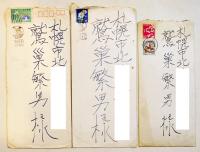 札幌市北
鷲巣繁男様
札幌市北
鷲巣繁男様
札幌市北
鷲巣繁男様